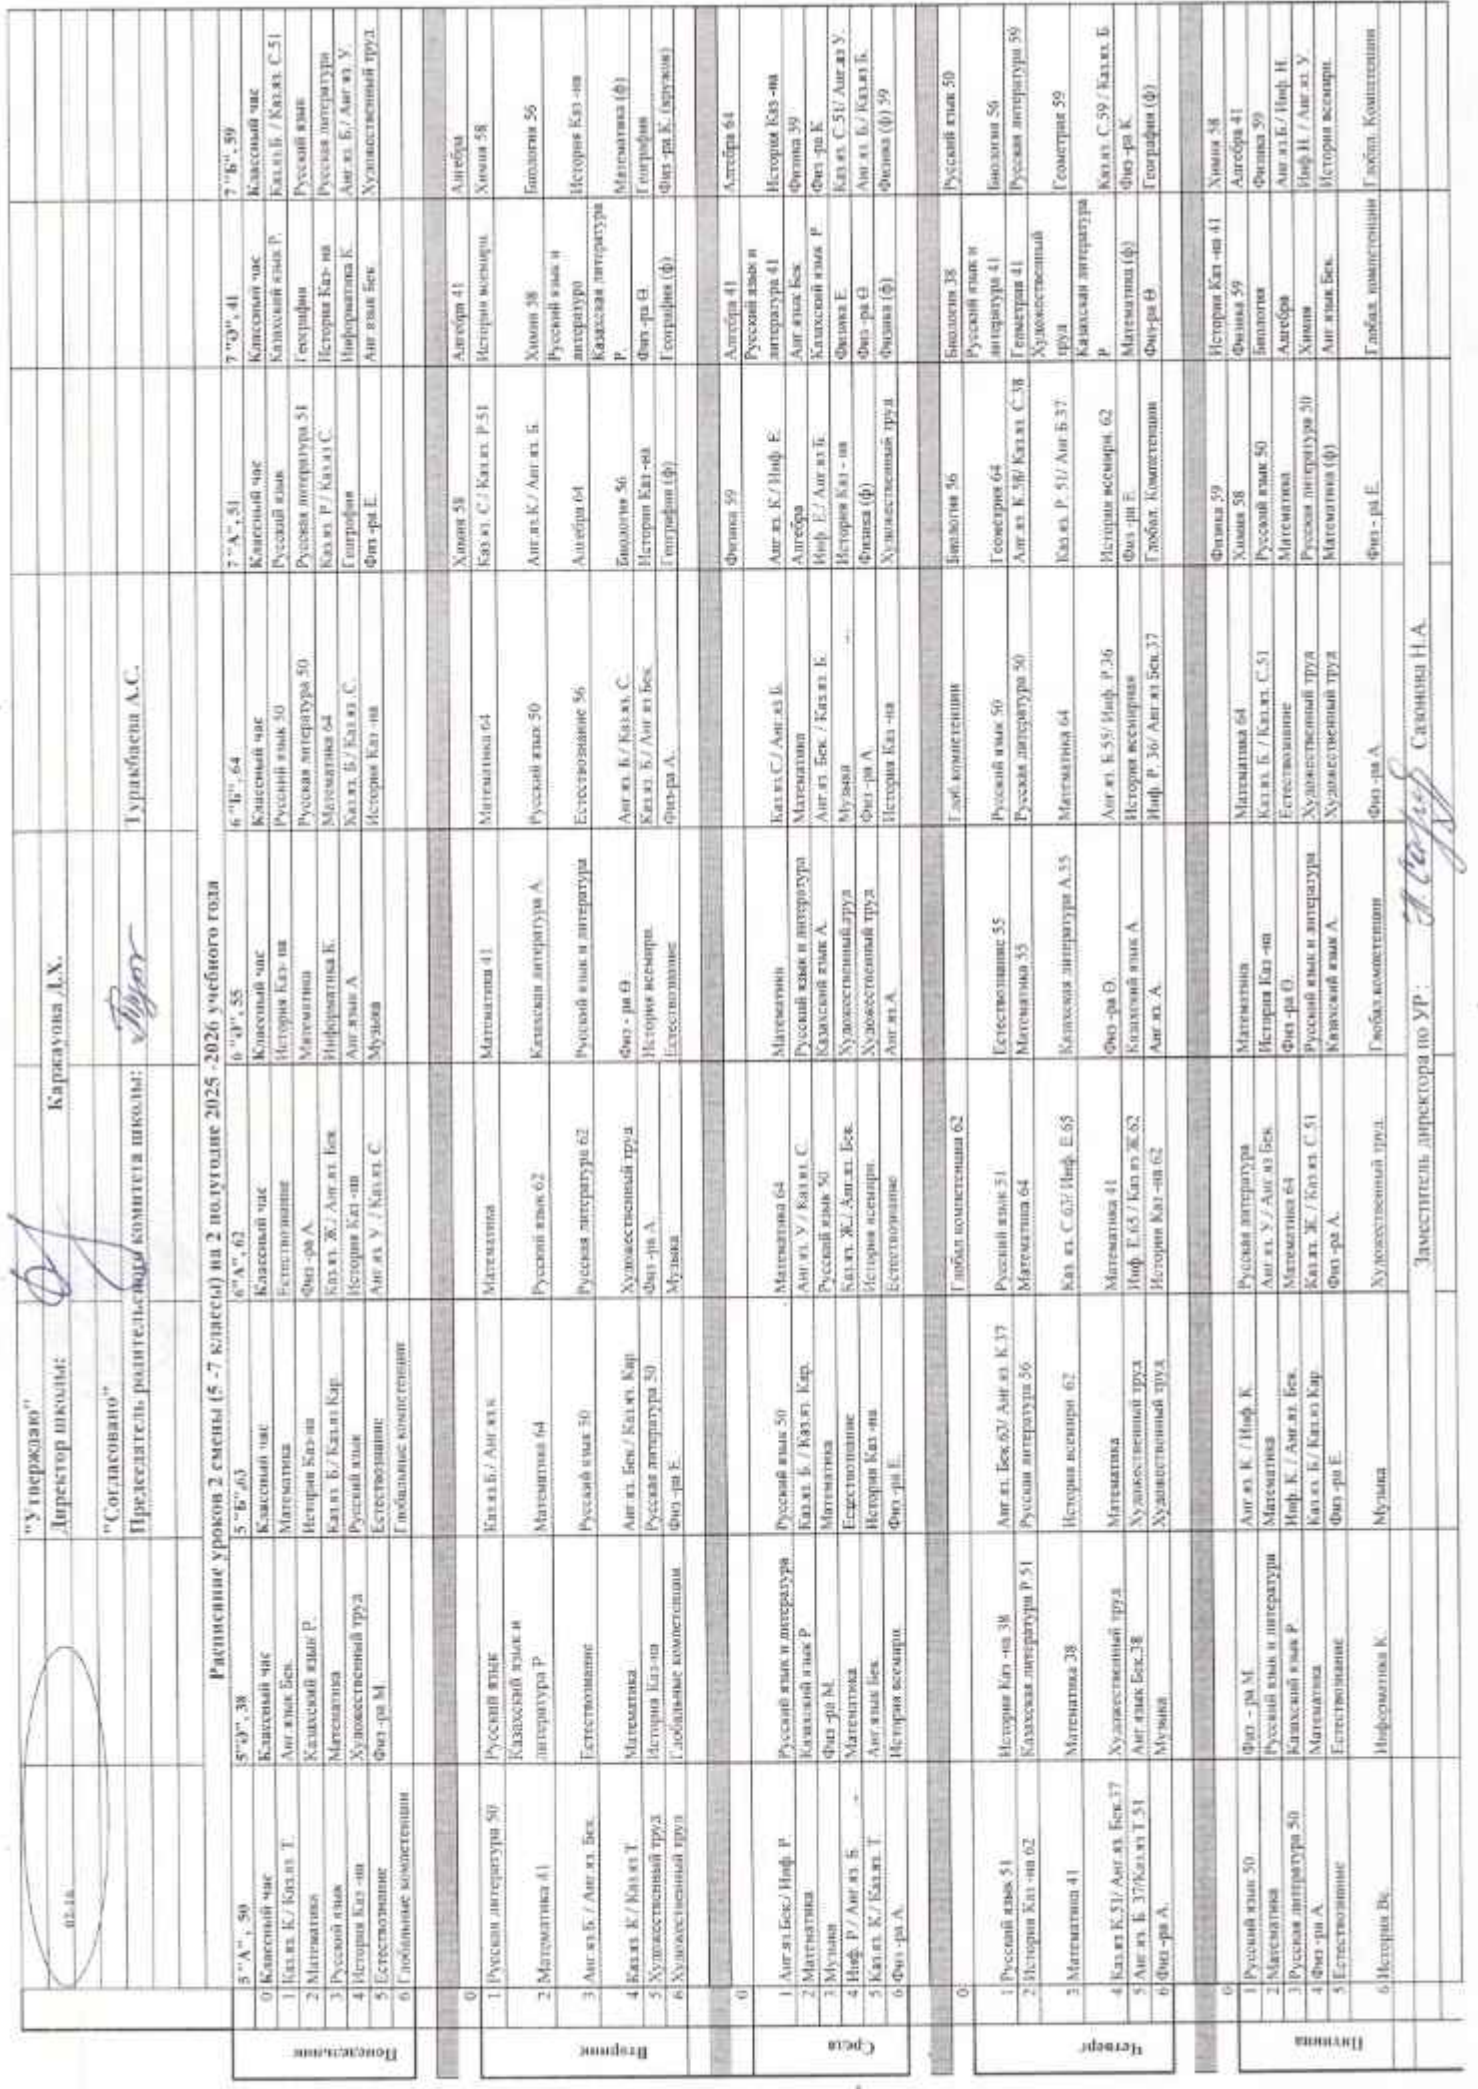 "Утверждаю"
Директор школы: Каржауова Д.Х.
"Согласовано"
Председатель родительского комитета школы: Туракбаева А.С.
Расписание уроков 2 смены (5 -7 классы) на 2 полугодие 2025 -2026 учебного года
5 "А" , 50 5"Ә", 38 5 "Б",63 6"А", 62 6 "Ә", 55 6 "Б",64 7 "А", 51 7 "Ә", 41 7 "Б", 59
Понедельник
0 Классный час Классный час Классный час Классный час Классный час Классный час Классный час Классный час Классный час
1 Каз.яз. К./ Каз.яз. Т. Анг.язык Бек. Математика Естествознание История Каз- на Русский язык 50 Русский язык Казахский язык Р. Каз.яз.Б. / Каз.яз. С.51
2 Математика Казахский язык Р. История Каз-на Физ -ра А. Математика Русская литература 50 Русская литература 51 География Русский язык
3 Русский язык Математика Каз.яз. Б./ Каз.яз Кар. Каз.яз. Ж./ Анг.яз. Бек Информатика К. Математика 64 Каз.яз. Р. / Каз.яз С. История Каз- на Русская литература
4 История Каз -на Художественный труд Русский язык История Каз -на Анг.язык А Каз.яз. Б./ Каз.яз. С. География Информатика К. Анг.яз. Б./ Анг.яз. У.
5 Естествознание Физ -ра М. Естествознание Анг.яз. У. / Каз.яз. С. Музыка История Каз -на Физ -ра Е. Анг.язык Бек Художественный труд
6 Глобальные компетенции Глобальные компетенции
Вторник
0 Химия 58 Алгебра 41 Алгебра
1 Русская литература 50 Русский язык Каз.яз.Б./ Анг.яз.к Математика Математика 41 Математика 64 Каз.яз. С./ Каз.яз. Р.51 История всемирн. Химия 58
2 Математика 41 Казахский язык и литература Р Математика 64 Русский язык 62 Казахская литература А. Русский язык 50 Анг.яз.К./ Анг.яз. Б. Химия 38 Биология 56
3 Анг.яз Б. / Анг.яз. Бек. Естествознание Русский язык 50 Русская литература 62 Русский язык и литература Естествознание 56 Алгебра 64 Русский язык и литература История Каз -на
4 Каз.яз. К/ Каз.яз Т Математика Анг.яз. Бек./ Каз.яз. Кар Художественный труд Физ - ра Ө. Анг.яз. Б./ Каз.яз. С. Биология 56 Казахская литература Р. Математика (ф)
5 Художественный труд История Каз-на Русская литература 50 Физ -ра А. История всемирн. Каз.яз. Б./ Анг.яз Бек. История Каз -на Физ -ра Ө. География
6 Художественный труд Глобальные компетенции Физ -ра Е. Музыка Естествознание Физ-ра А. География (ф) География (ф) Физ -ра К. (кружок)
Среда
0 Физика 59 Алгебра 41 Алгебра 64
1 Анг.яз Бек./ Инф. Р. Русский язык и литература Русский язык 50 Математика 64 Математика Каз.яз С./ Анг.яз Б. Анг.яз. К./ Инф. Е. Русский язык и литература 41 История Каз -на
2 Математика Казахский язык Р Каз.яз. Б. / Каз.яз. Кар. Анг.яз. У / Каз.яз. С. Русский язык и литература Математика Алгебра Анг.язык Бек. Физика 59
3 Музыка Физ -ра М. Математика Русский язык 50 Казахский язык А. Анг.яз. Бек. / Каз.яз. Б. Инф. Е./ Анг.яз Б. Казахский язык Р. Физ -ра К
4 Инф. Р./ Анг.яз. Б. Математика Естествознание Каз.яз. Ж./ Анг.яз. Бек. Художественный труд Музыка История Каз - на Физика Е. Каз.яз. С.51/ Анг.яз У.
5 Каз.яз. К./ Каз.яз. Т. Анг.язык Бек. История Каз -на История всемирн. Художественный труд Физ -ра А Физика (ф) Физ -ра Ө. Анг.яз. Б./ Каз.яз Б.
6 Физ -ра А. История всемирн. Физ -ра Е. Естествознание Анг.яз.А. История Каз -на Художественный труд Физика (ф) Физика (ф) 59
Четверг
0 Глобал компетенции 62 Глоб. компетенции Биология 56 Биология 38 Русский язык 50
1 Русский язык 51 История Каз -на 38 Анг.яз. Бек.63/ Анг.яз. К.37 Русский язык 51 Естествознание 55 Русский язык 50 Геометрия 64 Русский язык и литература 41 Биология 56
2 История Каз -на 62 Казахская литература Р.51 Русская литература 56 Математика 64 Математика 55 Русская литература 50 Анг.яз. К.58/ Каз.яз. С.38 Геометрия 41 Русская литература 59
3 Математика 41 Математика 38 История всемирн 62 Каз. яз. С.63/ Инф. Е.65 Казахская литература А.55 Математика 64 Каз.яз. Р. 51/ Анг.Б.37 Художественный труд Геометрия 59
4 Каз.яз К.51/ Анг.яз. Бек.37 Художественный труд Математика Математика 41 Физ -ра Ө. Анг.яз. Б.55/ Инф. Р.36 История всемирн. 62 Казахская литература Р Каз.яз. С.59 / Каз.яз. Б
5 Анг.яз. Б. 37/Каз.яз Т.51 Анг.язык Бек.38 Художественный труд Инф. Е.65 / Каз.яз Ж.62 Казахский язык А История всемирная Физ -ра Е. Математика (ф) Физ -ра К
6 Физ -ра А. Музыка Художественный труд История Каз -на 62 Анг.яз. А. Инф. Р. 36/ Анг.яз Бек.37 Глобал. Компетенции Физ-ра Ө География (ф)
Пятница
0 Физика 59 История Каз -на 41 Химия 58
1 Русский язык 50 Физ - ра М. Анг.яз. К. / Инф. К. Русская литература Математика Математика 64 Химия 58 Физика 59 Алгебра 41
2 Математика Русский язык и литература Математика Анг.яз. У./ Анг.яз Бек. История Каз -на Каз.яз. Б. / Каз.яз. С.51 Русский язык 50 Биология Физика 59
3 Русская литература 50 Казахский язык Р. Инф. К. / Анг.яз. Бек. Математика 64 Физ -ра Ө. Естествознание Математика Алгебра Анг.яз Б./ Инф. Н.
4 Физ -ра А Математика Каз.яз. Б./ Каз.яз Кар Каз.яз. Ж. / Каз.яз. С.51 Русский язык и литература Художественный труд Русская литература 50 Химия Инф.Н. / Анг.яз. У.
5 Естествознание Естествознание Физ -ра Е. Физ -ра А. Казахский язык А. Художественный труд Математика (ф) Анг.язык Бек. История всемирн.
6 История Вс. Информатика К. Музыка Художественный труд. Глобал.компетенции Физ -ра А Физ - ра Е. Глобал. компетенции Глобал. Компетенции
Заместитель директора по УР : Сазонова Н.А.